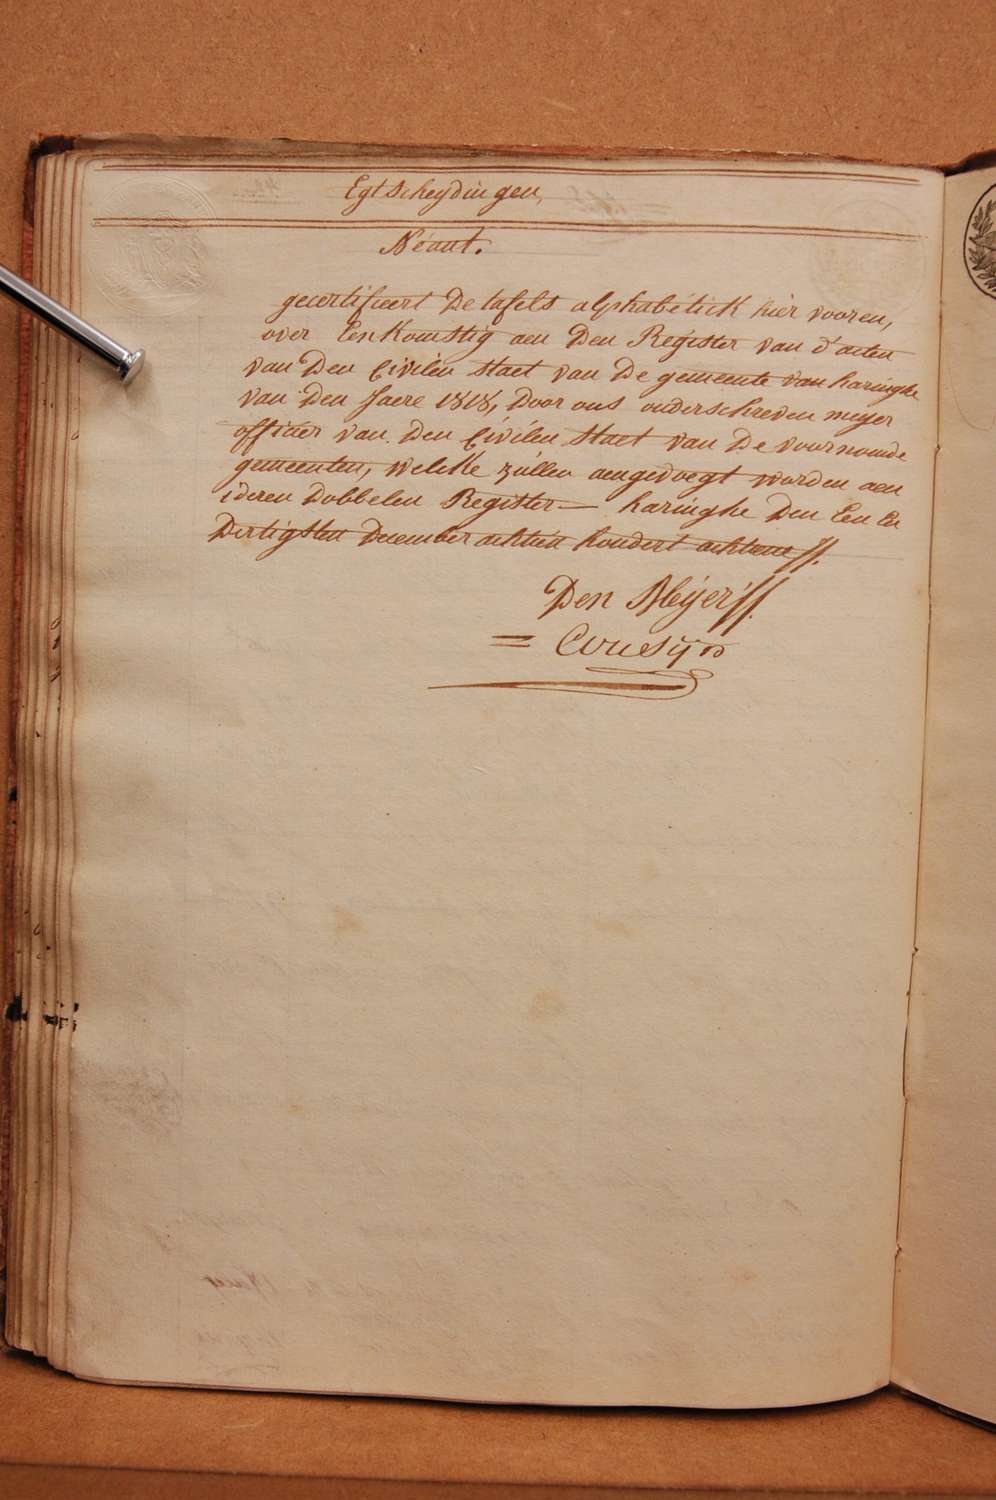 Egtscheydingen,
Néant.
gecertifieert De tafels alphabétick hier vooren,
over Eenkomstig aen Den Register van d'acten
van Den Civilen staet van De gemeente van haringhe
van Den Jaere 1818, Door ons onderschreven meyer
officier van Den Civilen Staet van De voornomde
gemeenten, welcke zùllen aengevoegt worden aen
ideren Dobbelen Register — haringhe Den Een En
Dertigsten December achtien hondert achtiene //.
Den Meÿer //.
= Cousyn